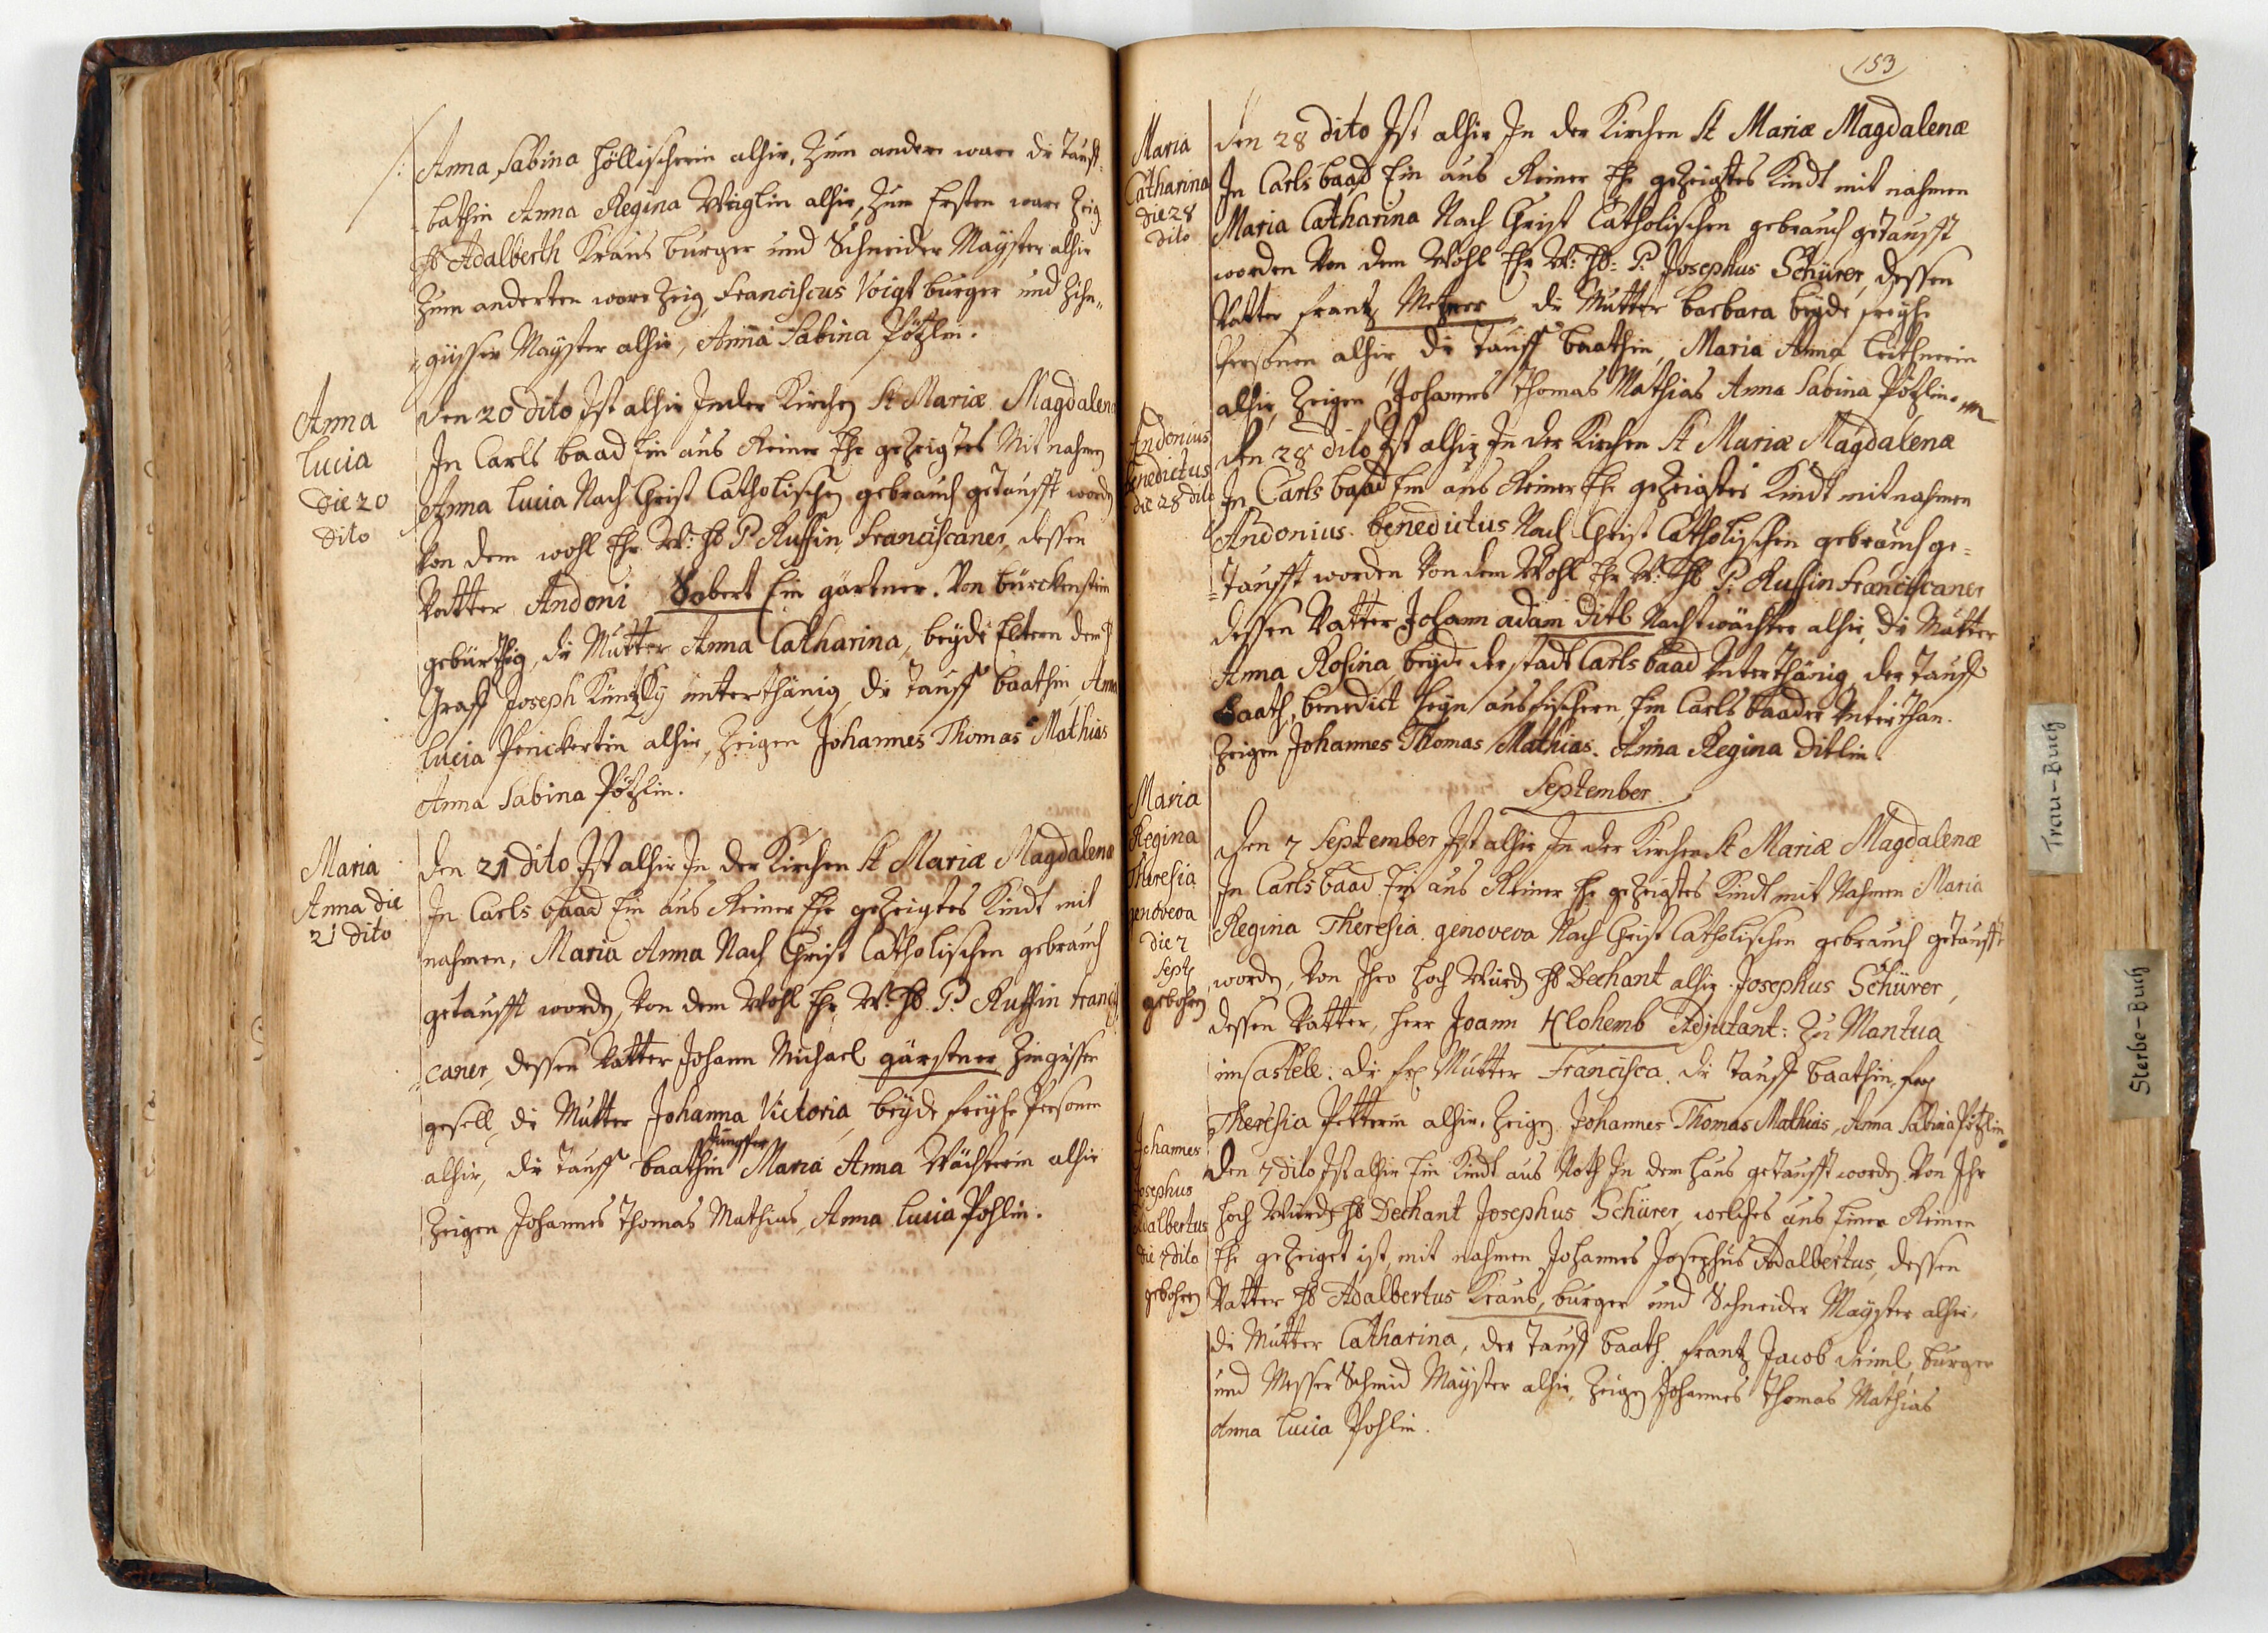 Anna Sabina Höllischerin alhir, Zum andern ware die Tauff-
bathin Anna Regina Weiglin alhir, Zum Ersten ware Zeig
H: Adalberth Kraus burger und Schneider Mayster alhir
Zum anderten ware Zeig Franciscus Voigt burger und Zihn-
=gysser Mayster alhir, Anna Sabina Pötzlin.
Anna
Lucia
die 20
dito
den 20 dito Ist alhir In der Kirchen St Mariæ Magdalenæ
In Carls baad Ein aus Reiner Ehe gezeigtes Mit nahmen
Anna Lucia Nach Christ Catholischen gebrauch getaufft worden
Von dem wohl Ehr W: H: P. Ruffin, Franciscaner, dessen
Vatter Andoni Sobert Ein gärtner. Von bürckenstein
gebürthig, die Mutter Anna Catharina, beyde Eltern dem H
Graff Joseph Küntzky unterthänig, die Tauff baathin, Anna
Lucia Penckertin alhir, Zeigen Johannes Thomas Mathias
Anna Sabina Pötzlin.
Maria
Anna die
21 dito
den 21 dito Ist alhir In der Kirchen St Mariæ Magdalenæ
In Carls baad Ein aus Reiner Ehe gezeigtes Kindt mit
nahmen, Maria Anna Nach Christ Catholischen gebrauch
getaufft worden, Von dem Wohl Ehr W: H: P. Ruffin Francis-
caner, dessen Vatter Johann Michael gärstner Zingisser
gesell, die Mutter Johanna Victoria, beyde freyhe Personen
Jungfer
alhir, die Tauff baathin Maria Anna Wächterin alhir
Zeigen Johannes Thomas Mathias, Anna Lucia Pohlin.
153
Maria
Catharina
die 28
dito
den 28 dito Ist alhir In der Kirchen St Mariæ Magdalenæ
In Carls baad Ein aus Reiner Ehe gezeigtes Kindt mit nahmen
Maria Catharina Nach Christ Catholischen gebrauch getaufft
worden Von dem Wohl Ehr W: H: P: Josephus Schürer, dessen
Vatter Frantz Metzner die Mutter barbara beyde freyhe
Personen alhir, die Tauff baathin, Maria Anna Leithnerin
alhir, Zeigen Johannes Thomas Mathias Anna Sabina Pötzlin.
Andonius
Benedictus
die 28 dito
den 28 dito Ist alhir In der Kirchen St Mariæ Magdalenæ
In Carls baad Ein aus Reiner Ehe gezeigtes Kindt mit nahmen
Andonius. benedictus Nach Christ Catholischen gebrauch ge-
=taufft worden Von dem Wohl Ehr W: H: P: Ruffin Franciscaner
dessen Vatter Johann adam Ditl Nachtwächter alhir, die Mutter
Anna Rosina, beyde der stadt Carls baad Unterthänig, der Tauff
Baath, benedict Heyn aus fischern, Ein Carls baader Unterthan.
Zeigen Johannes Thomas Mathias. Anna Regina Ditlin.
September
Maria
Regina
Theresia
genoveva
die 7
Sept
gebohren
Den 7 September Ist alhir In der Kirchen St Mariæ Magdalenæ
In Carls baad Ein aus Reiner Ehe gezeigtes Kindt mit Nahmen Maria
Regina Theresia genoveva Nach Christ Catholischen gebrauch getaufft
worden, Von Ihro Hoch Würd H: Dechant alhir Josephus Schürer,
dessen Vatter, Herr Joann Hlohemb Adjutant: Zu Mantua
im Castell. die fr: Mutter Francisca. die Tauff baathin, fr:
Theresia Petterin alhir, Zeigen Johannes Thomas Mathias, Anna Sabina Pötzlin
Johannes
Josephus
Adalbertus
die 7 dito
gebohren
Den 7 dito Ist alhir Ein Kindt aus Noth In dem Haus getaufft worden Von Ihr
Hoch Würd H: Dechant Josephus Schürer, welches aus Einer Reinen
Ehe gezeiget ist, mit nahmen Johannes Josephus Adalbertus, dessen
Vatter H: Adalbertus Kraus, burger und Schneider Mayster alhir,
die Mutter Catharina, der Tauff baath. Frantz Jacob burger
und Messer Schmid Mayster alhir, Zeigen Johannes Thomas Mathias
Anna Lucia Pohlin.
Trau-Buch
Sterbe-Buch